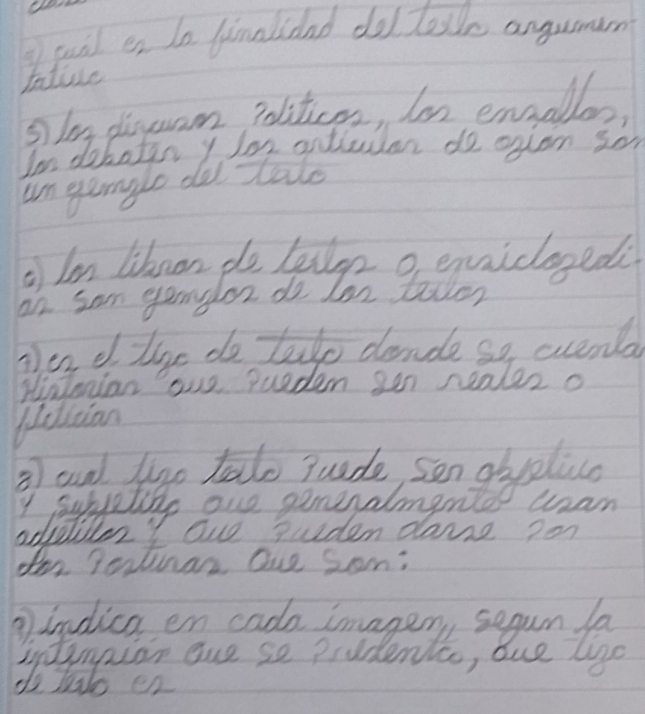 4) cuál es la finalidad del texto argumen
tativo
5) los discursos politicos, los ensallos,
los debates y los articulos de opion son
un gemplo del texto
6) los libros de textos o enciclopedi-
as son gemplos de los textos
7) es el tipo de texto donde se cuenta
Historias que pueden ser reales o
ficticias
8) cual tipo texto puede ser objetivo
y subjetivo que generalmente usan
adjetivos y que pueden darse por
dos posturas que son:
9) indica en cada imagen, segun la
que se que tipo
de texto es